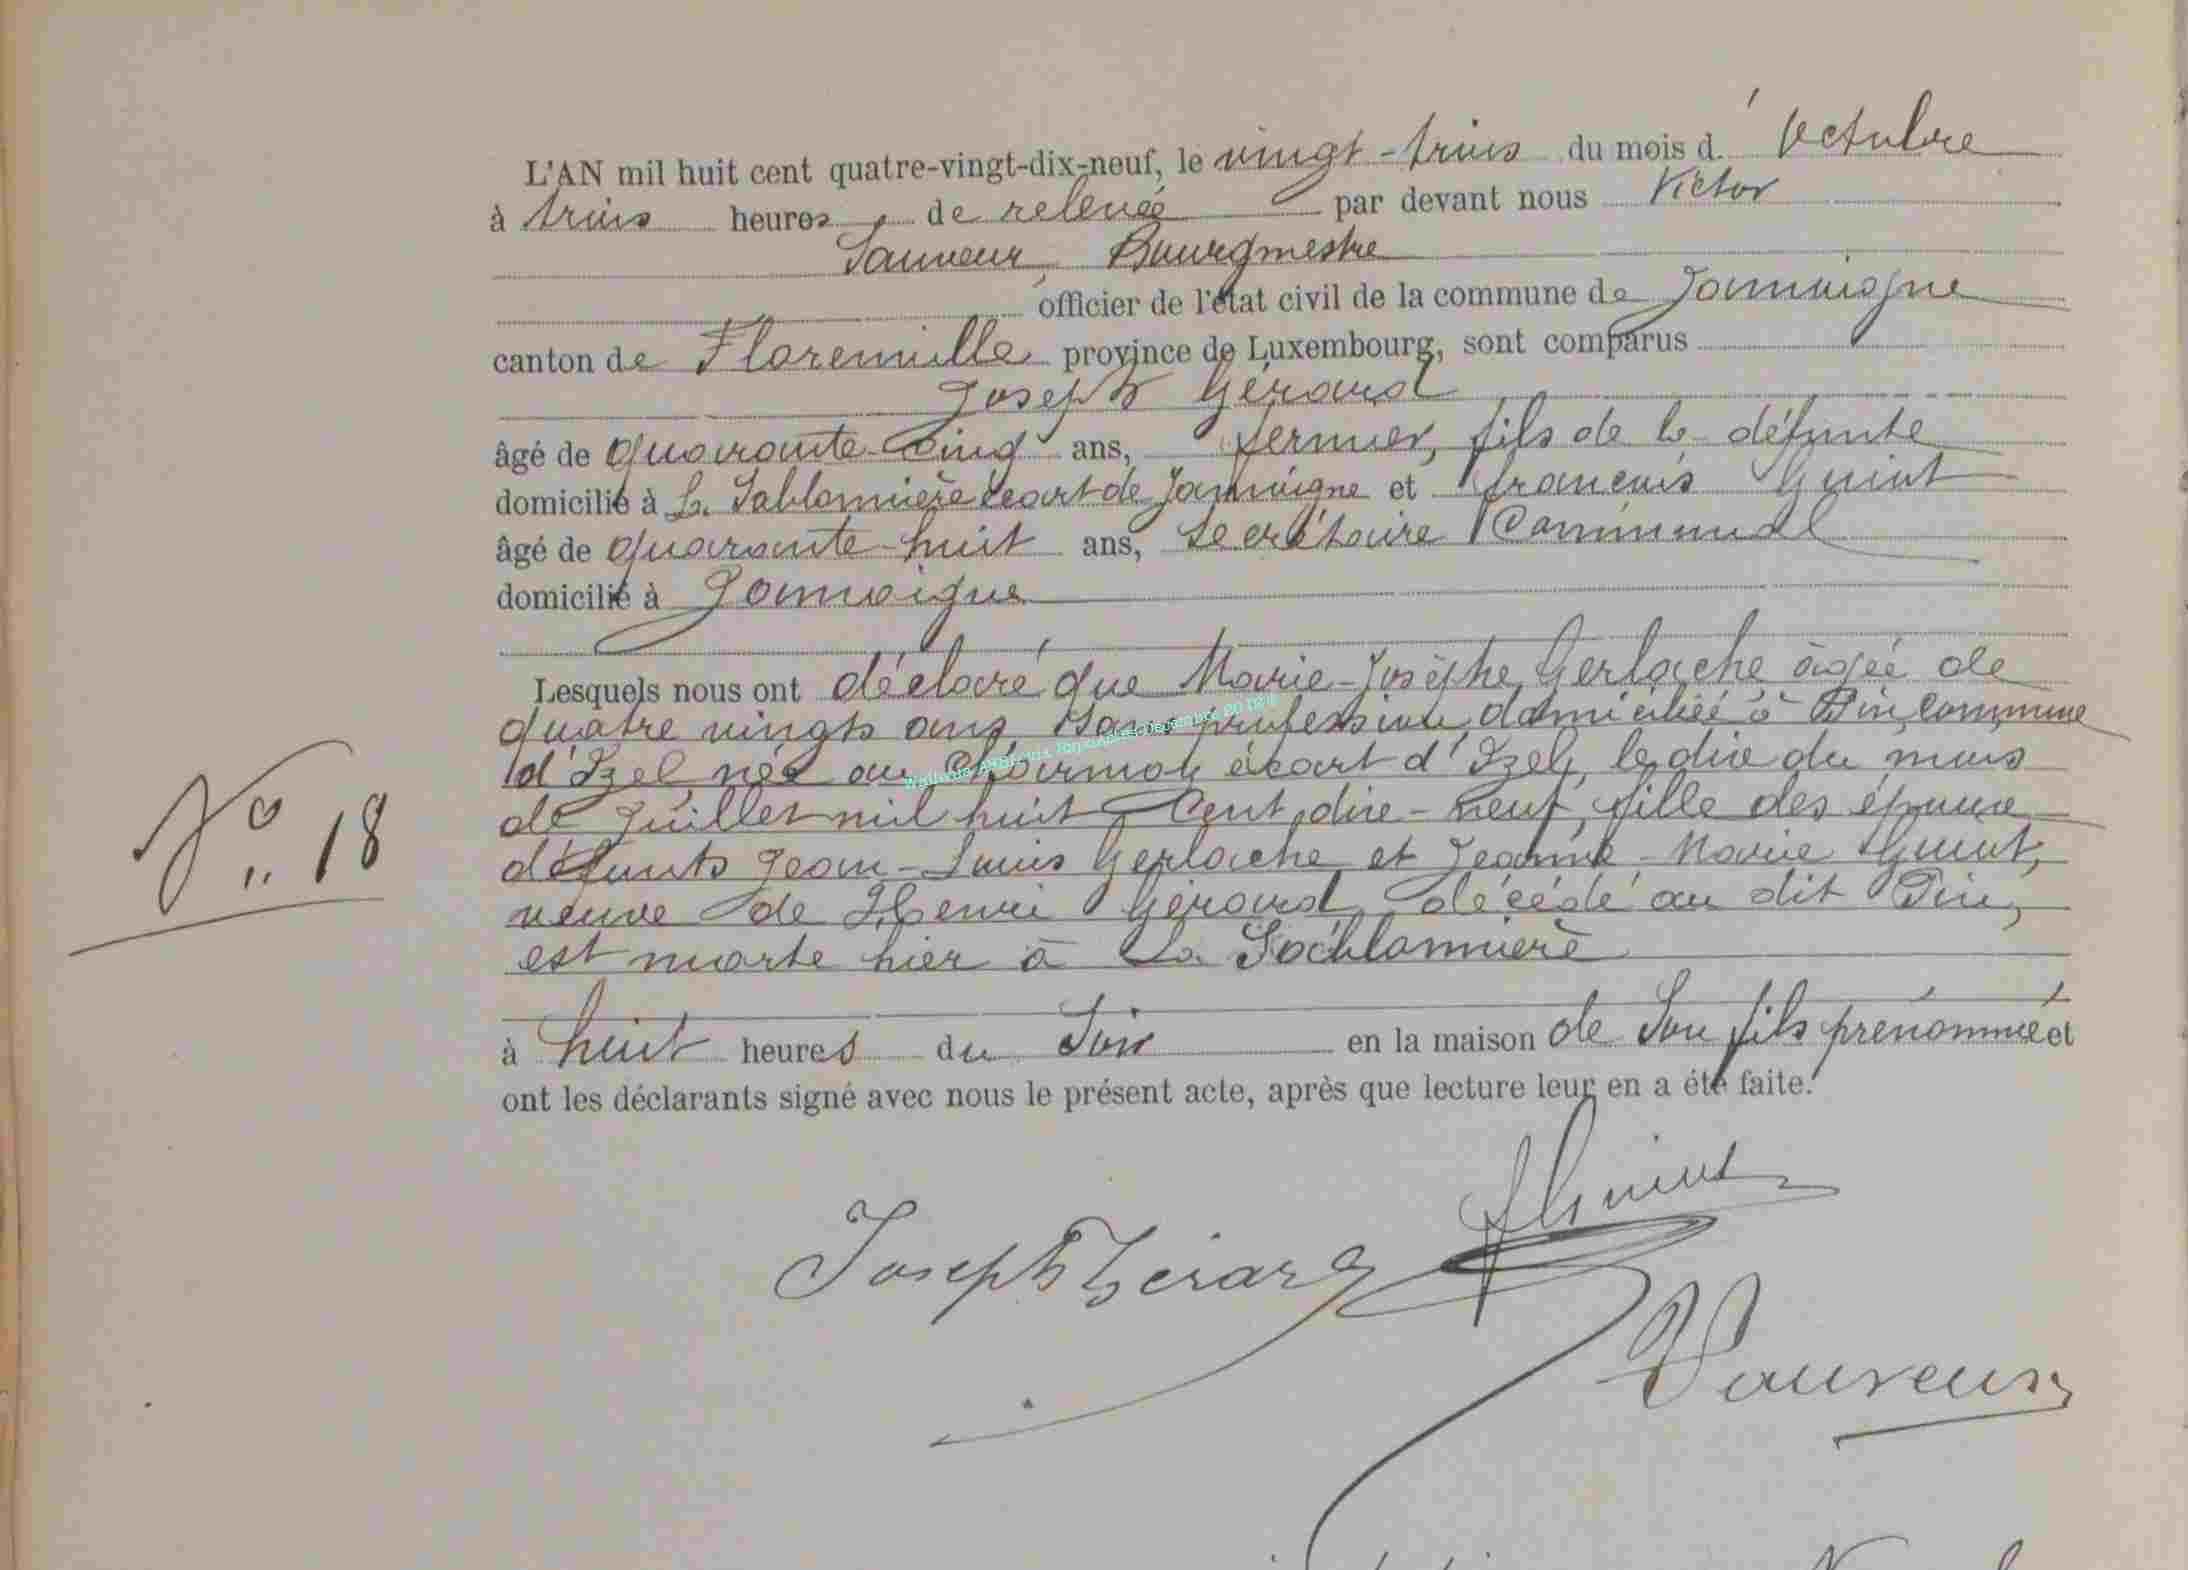 L'AN mil huit cent quatre-vingt-dix-neuf, le vingt-trois du mois d' Octobre
à trois heures de relevée par devant nous Victor
Sauveur, Bourgmestre
officier de l'état civil de la commune de Jamoigne
canton de Florenville province de Luxembourg, sont comparus
Joseph Gérard
âgé de quarante-cinq ans, fermier, fils de la défunte
domicilié à la Sablonnière écart de Jamoigne et François Guiot
âgé de quarante-huit ans, Secrétaire Communal
domicilié à Jamoigne
Lesquels nous ont déclaré que Marie-Josèphe Gerlache âgée de
quatre vingts ans, sans profession, domiciliée à Pin, commune
d'Izel, née au Charmois écart d'Izel, le dix du mois
de Juillet mil huit Cent dix-neuf, fille des époux
défunts Jean-Louis Gerlache et Jeanne-Marie Guiot,
N° 18
veuve de Henri Gérard, décédé au dit Pin,
est morte hier à La Sablonnière
à huit heures du Soir en la maison de Son fils prénommé et
ont les déclarants signé avec nous le présent acte, après que lecture leur en a été faite.
Joseph Gérard
Sauveur